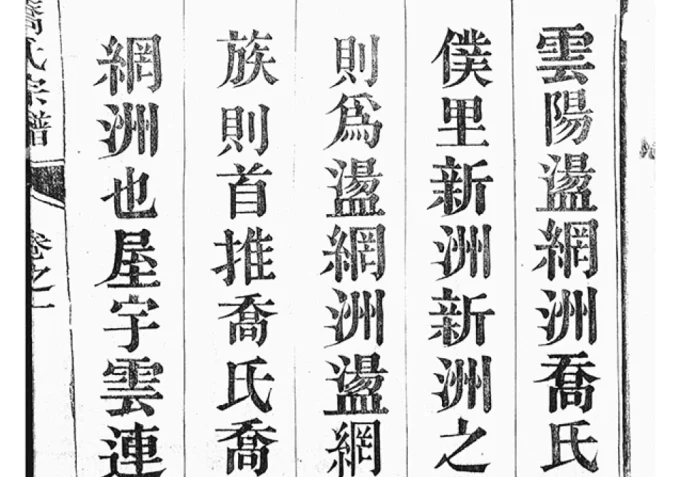 雲陽盪網洲喬氏
僕里新洲新洲之
則爲盪網洲盪網
族則首推喬氏喬
網洲也屋宇雲連
喬氏宗譜 卷之一